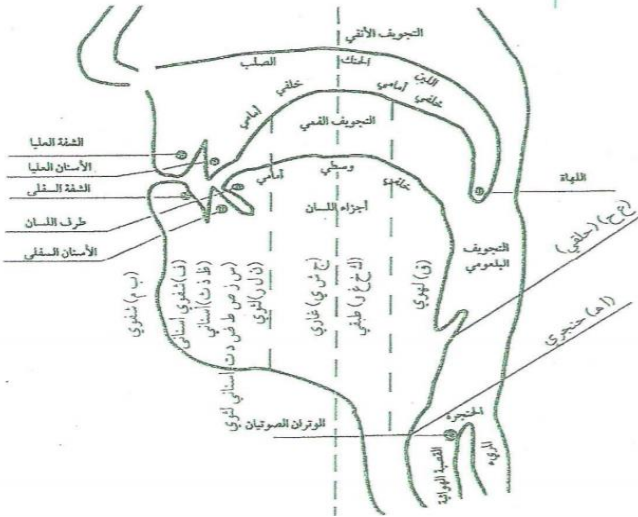 التجويف الأنفي
الحنك
الصلب
اللين
أمامي
خلفي
أمامي
خلفي
التجويف الفمي
الشفة العليا
الأسنان العليا
الشفة السفلى
طرف اللسان
الأسنان السفلى
أمامي
وسطي
خلفي
أجزاء اللسان
اللهاة
التجويف
البلعومي
(ع ح) (حلقي)
(اهـ) حنجري
(ب م) شفوي
(ف) شفوي أسناني
(ظ ذ ث) أسناني
(س ز ص ط ض د ت) أسناني لثوي
(ن ل ر) لثوي
(ج ش ي) غاري
(ك خ غ و) طبقي
(ق) لهوي
الوتران الصوتيان
الحنجرة
القصبة الهوائية
المريء